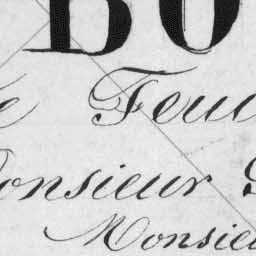 BO
e Feu
onsieur
Monsieu